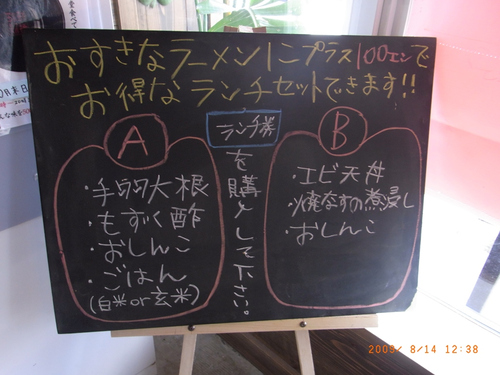 おすきなラーメンにプラス100エンで
お得なランチセットできます!!
A
・手羽大根
・もずく酢
・おしんこ
・ごはん
(白米or玄米)
ランチ券
を購入して下さい。
B
・エビ天丼
・焼なすの煮浸し
・おしんこ
2005/ 8/14 12:38